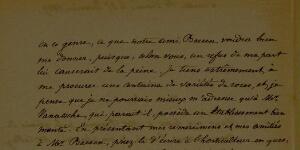 en ce genre, ce que notre ami Bercon, voudra bien
me donner, puisque, selon vous, un refus de ma part
lui causerait de la peine. Je tiens extrêmement, à
me procurer une centaine de variétés de roses, et, je
pense que je ne pourrais mieux m'adresser qu'à Mr.
qui, parait-il, possède un établissement bien
monté. En présentant mes remerciments et mes amitiés
à Mr. Bercon, priez-le d'écrire à l'horticulteur en gros,